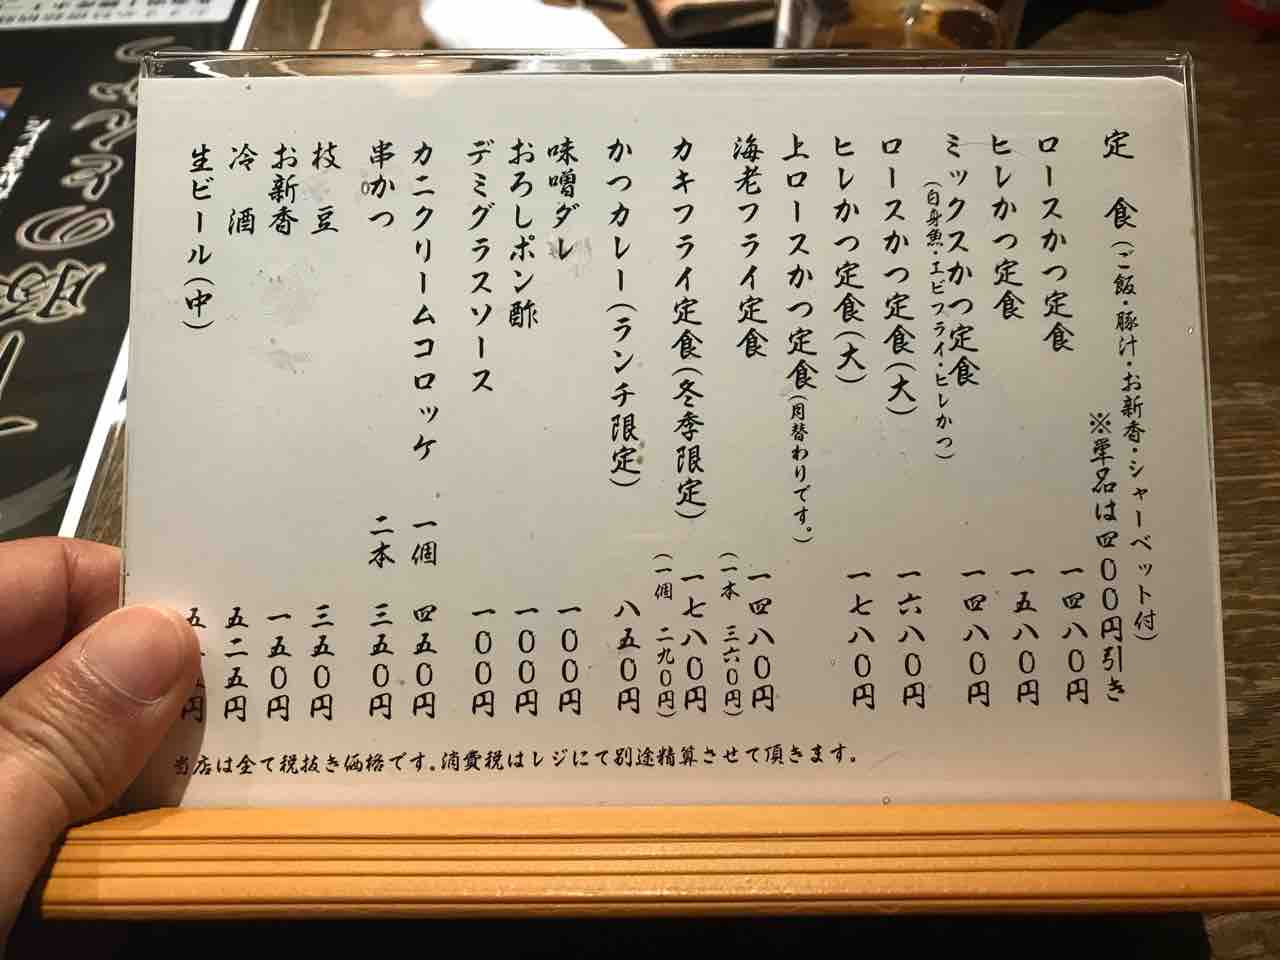 定食(ご飯・豚汁・お新香・シャーベット付)
※単品は四〇〇円引き
ロースかつ定食 一四八〇円
ヒレかつ定食 一五八〇円
ミックスかつ定食 一四八〇円
(白身魚・エビフライ・ヒレかつ)
ロースかつ定食(大) 一六八〇円
ヒレかつ定食(大) 一七八〇円
上ロースかつ定食(月替わりです。)
海老フライ定食 一四八〇円
(一本 三六〇円)
カキフライ定食(冬季限定) 一七八〇円
(一個 二九〇円)
かつカレー(ランチ限定) 八五〇円
味噌ダレ 一〇〇円
おろしポン酢 一〇〇円
デミグラスソース 一〇〇円
カニクリームコロッケ 一個 四五〇円
串かつ 二本 三五〇円
枝豆 三五〇円
お新香 一五〇円
冷酒 五二五円
生ビール(中) 五 円
当店は全て税抜き価格です。消費税はレジにて別途精算させて頂きます。